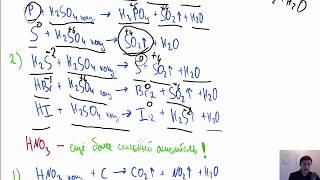 P + H₂SO₄ конц → H₃PO₄ + SO₂↑ + H₂O
S + H₂SO₄ конц → SO₂↑ + H₂O
2) H₂S + H₂SO₄ конц → S + SO₂↑ + H₂O
HBr + H₂SO₄ конц → Br₂ + SO₂↑ + H₂O
HI + H₂SO₄ конц → I₂ + H₂S + H₂O
HNO₃ - ещё более сильный окислитель!
1) HNO₃ конц + C → CO₂↑ + NO₂↑ + H₂O